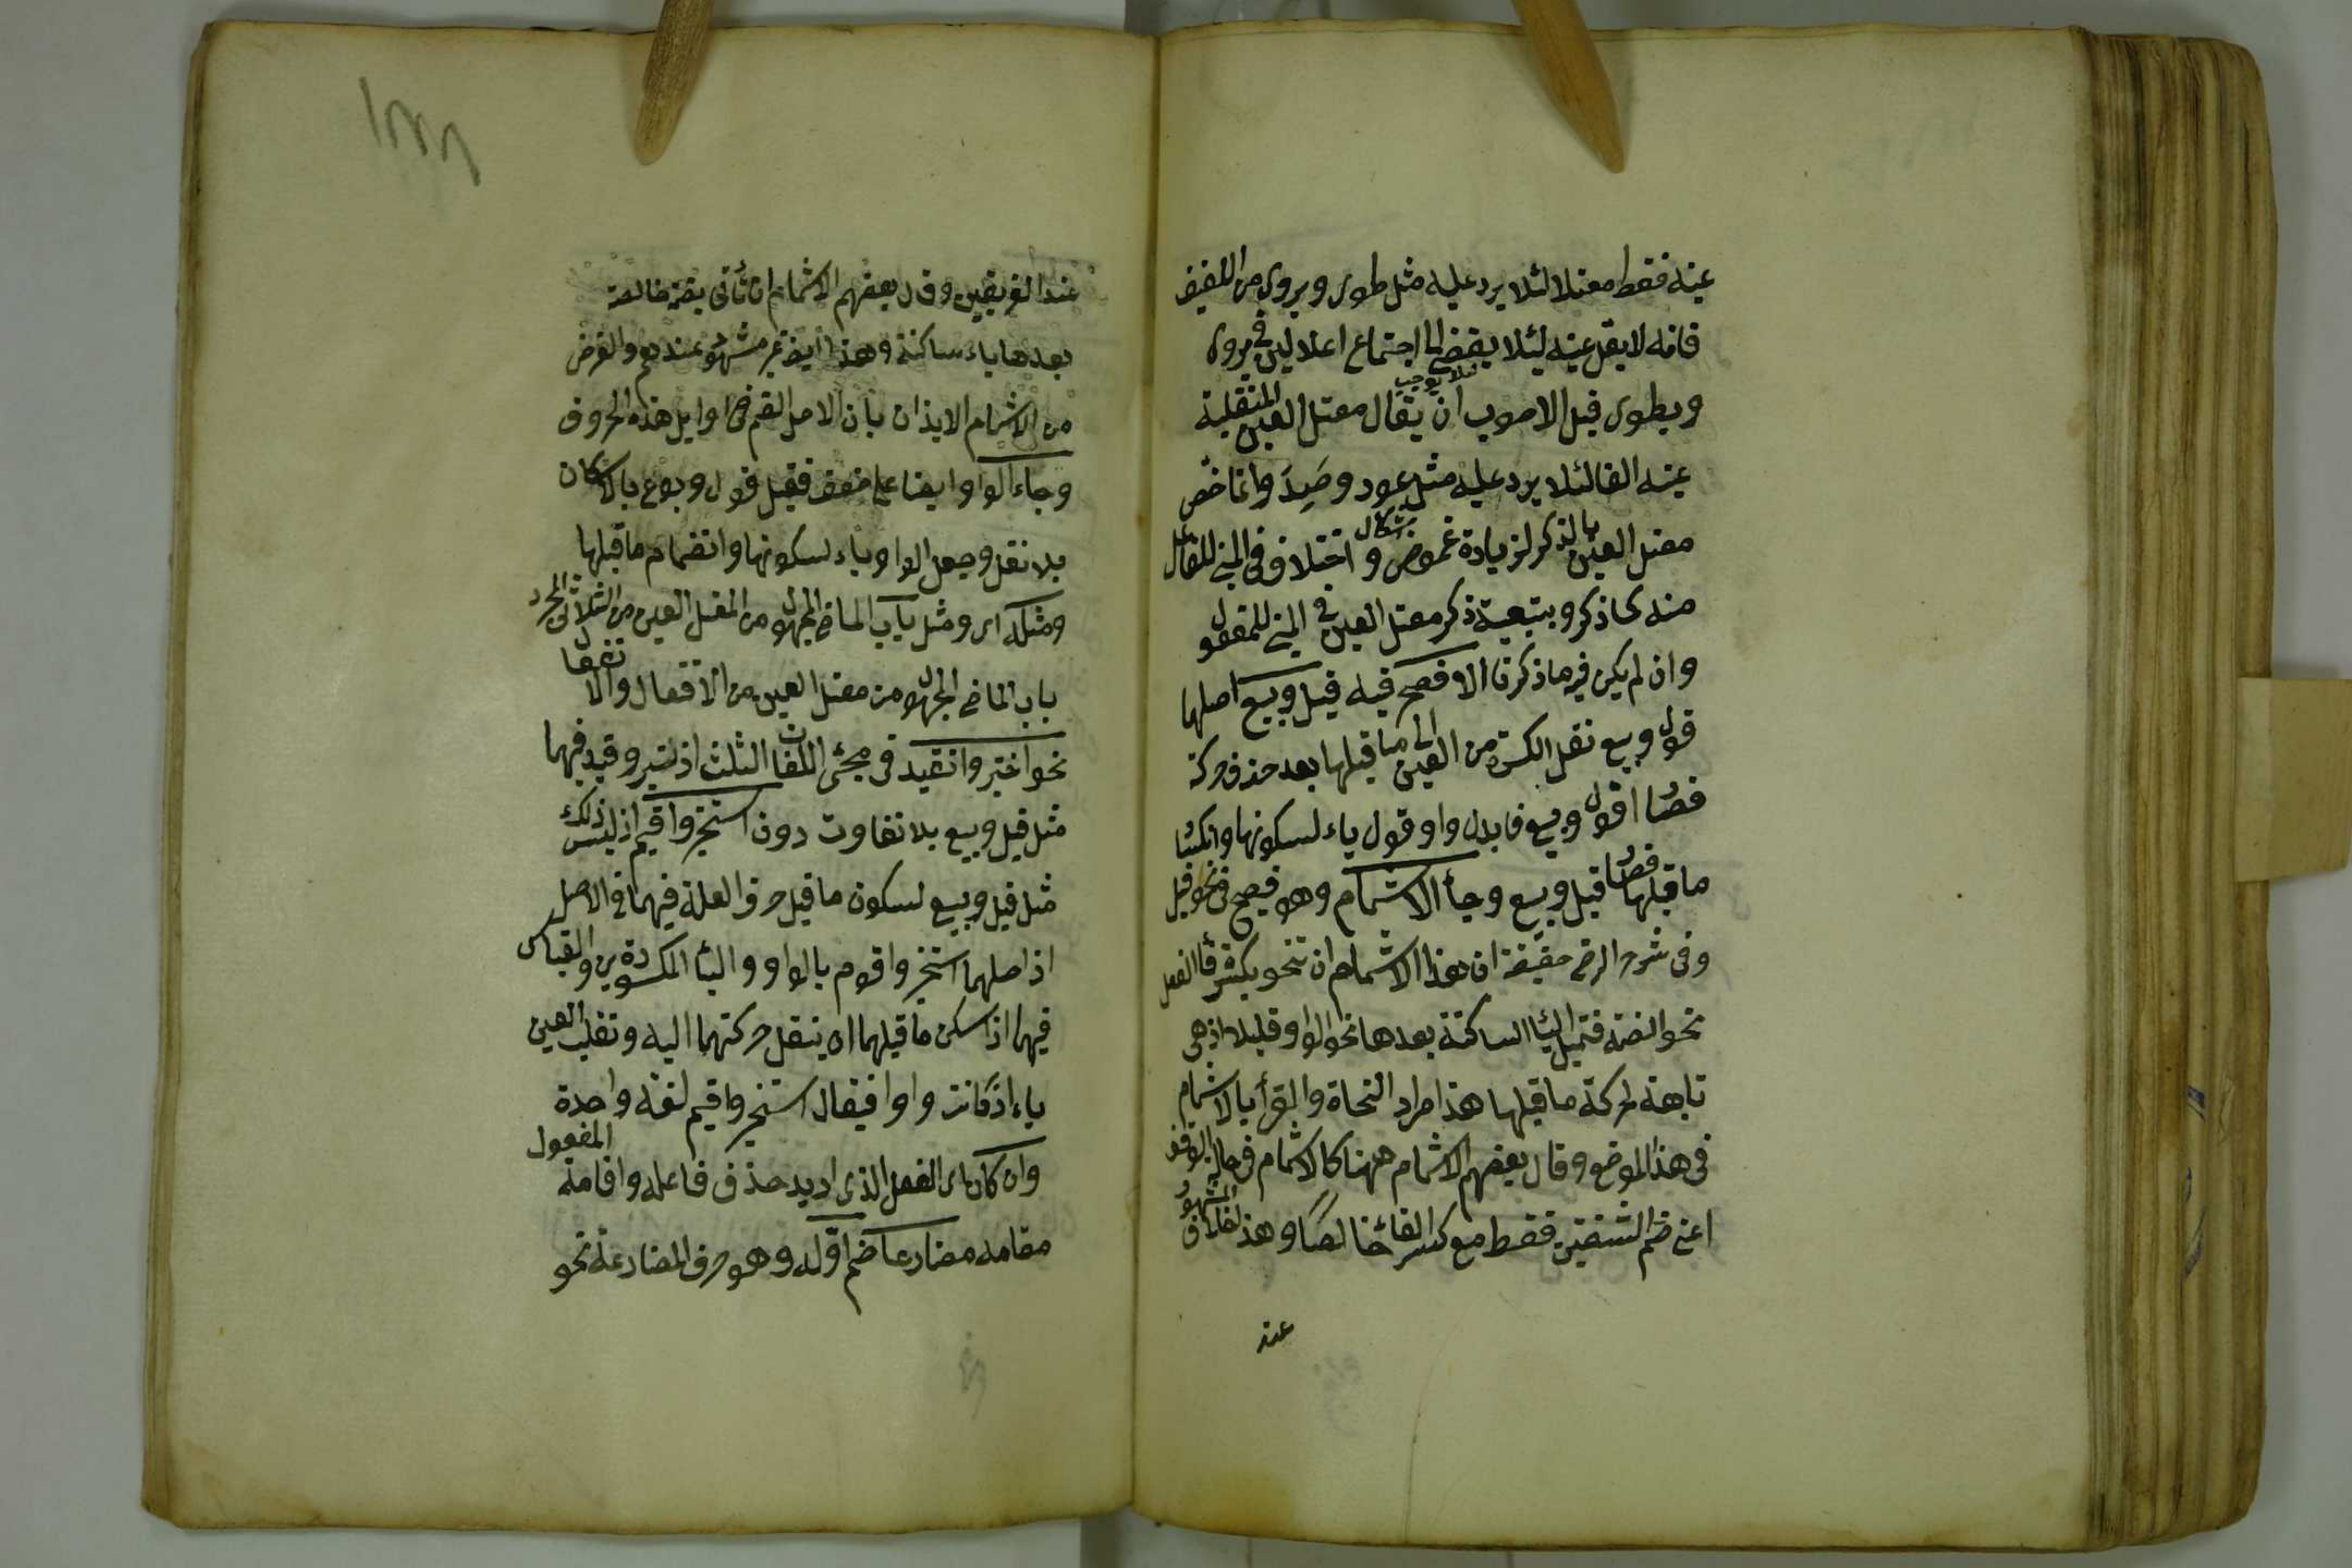 عينه فقط معتلا لئلا يرد عليه مثل طوى ويروى من اللفيف
فانه لا يعل عينه لئلا يفضى الى اجتماع اعلالين في يروى
ويطوى قيل الاصوب ان يقال معتل العين المنقلبة
عينه الفا لئلا يرد عليه مثل عود وصَيِدَ وانما خص
معتل العين بالذكر لزيادة غموض واختلاف في المبني للفاعل
منه كما ذكر وبتبعية ذكر معتل العين في المبني للمفعول
وان لم يكن فيه ما ذكرنا الافصح فيه قيل وبيع اصلهما
قول وبيع نقل الكسرة من العين الى ما قبلها بعد حذف حركته
فصار قول وبيع فابدل واو قول ياء لسكونها وانكسار
ما قبلها فصار قيل وبيع وجاء الاشمام وهو فصيح في نحو قيل
وفي شرح الرضي حقيقة ان هذا الاشمام ان تنحو بكسرة فاء الفعل
نحو الضمة فتميل الياء الساكنة بعدها نحو الواو قليلا اذ هي
تابعة لحركة ما قبلها هذا مراد النحاة والقرأ بالاشمام
في هذا الموضع وقال بعضهم الاشمام ههنا كالاشمام في حالة الوقف
اعني ضم الشفتين فقط مع كسر الفاء خالصا وهذا خلاف المشهور
عند
عند الفريقين وقال بعضهم الاشمام ان تأتي بضمة خالصة
بعدها ياء ساكنة وهذا ايضا غير مشهور عندهم والغرض
من الاشمام الايذان بان الاصل الضم في اوايل هذه الحروف
وجاء الواو ايضا على ضعف فقيل قول وبوع بالاسكان
بلا نقل وجعل الواو ياء لسكونها وانضمام ما قبلها
ومثله اى ومثل باب الماضي المجهول من المعتل العين من الثلاثي المجرد
باب الماضي المجهول من معتل العين من الافتعال والانفعال
نحو اختير وانقيد في مجئ اللغات الثلث اذ تير وقيد فيهما
مثل قيل وبيع بلا تفاوت دون استخير واقيم اذ ليس ذلك
مثل قيل وبيع لسكون ما قبل حرف العلة فيهما في الاصل
اذ اصلهما استخير واقوم بالواو والياء المكسورتين والقياس
فيهما اذا سكن ما قبلهما ان ينقل حركتهما اليه وتقلب العين
ياء اذ كانت واوا فيقال استخير واقيم لغة واحدة
وان كان اى الفعل الذى اريد حذف فاعله واقامة المفعول
مقامه مضارعا ضم اوله وهو حرف المضارعة نحو